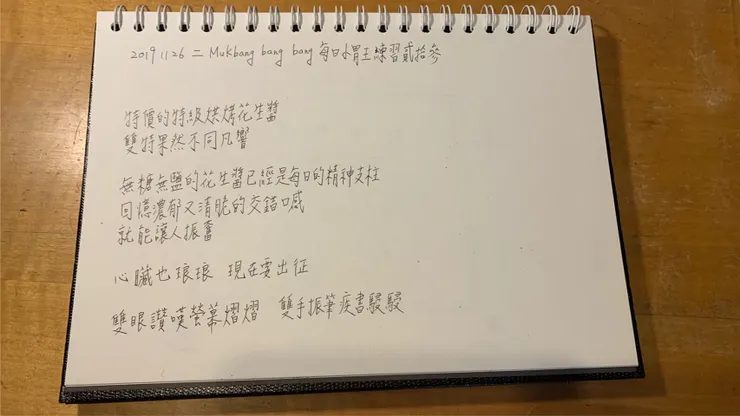 2019 11 26 二 Mukbang bang bang 每日小胃王練習貳拾參
特價的特級烘烤花生醬
雙特果然不同凡響
無糖無鹽的花生醬已經是每日的精神支柱
回憶濃郁又清脆的交錯口感
就能讓人振奮
心臟也琅琅 現在要出征
雙眼讚嘆螢幕熠熠 雙手振筆疾書駸駸